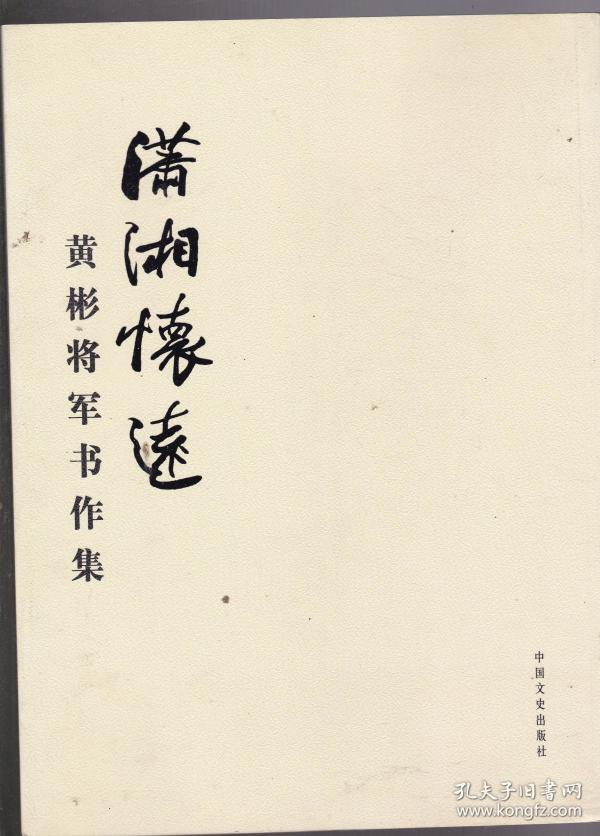 瀟湘懷遠
黄彬将军书作集
中国文史出版社
孔夫子旧书网
www.kongfz.com